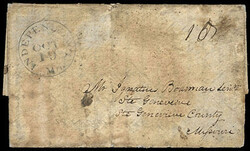 INDEPEN
OCT
19
Mo.
10
Mr Ignatius Bowman Senr
Ste Genevieve
Ste Genevieve County
Missouri